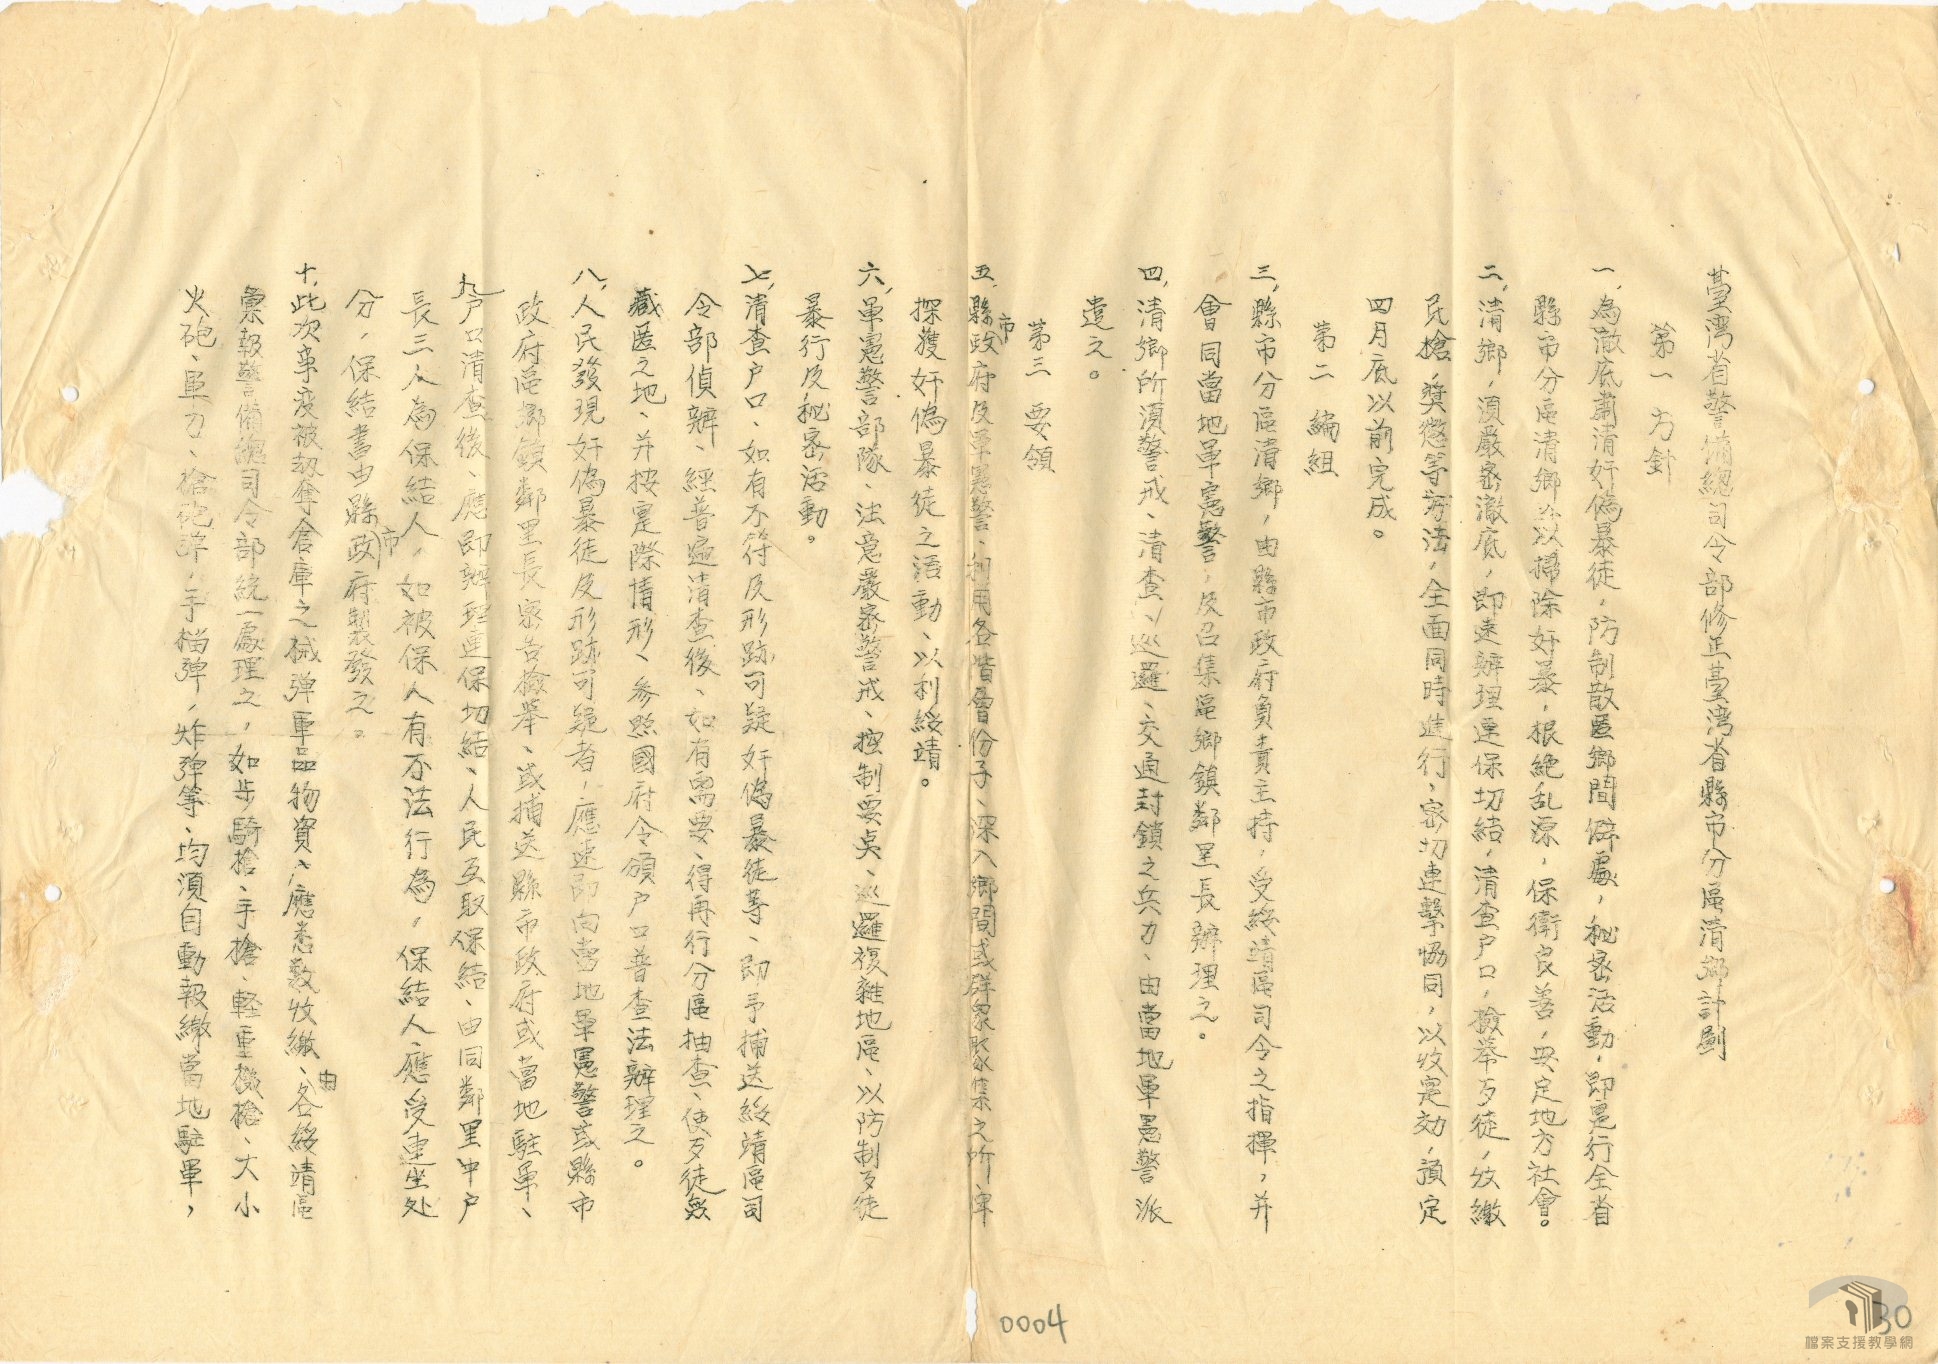 臺湾省警備總司令部修正臺湾省縣市分區清鄉計劃
第一 方針
一、為澈底肅清奸偽暴徒，防制散匿鄉間僻處，秘密活動，即寔行全省
縣市分區清鄉，以掃除奸暴，根絕乱源，保衛良善，安定地方社會。
二、清鄉，須嚴密澈底，即速辦理連保切結，清查户口，檢举歹徒，收繳
民槍，獎懲等辦法，全面同時進行，密切連擊協同，以收寔効，預定
四月底以前完成。
第二 編組
三、縣市分區清鄉，由縣市政府負責主持，受綏靖區司令之指揮，并
會同當地軍憲警，及召集區鄉鎮鄰里長辦理之。
四、清鄉所須警戒、清查、巡邏、交通封鎖之兵力、由當地軍憲警派
遣之。
第三 要領
五、縣市政府及軍憲警、利用各階層份子、深入鄉間或群眾聚集之所、俾
探獲奸偽暴徒之活動、以利綏靖。
六、軍憲警部隊、注意嚴密警戒、控制要点、巡邏複雜地區、以防制歹徒
暴行及秘密活動。
七、清查户口、如有不符及形跡可疑奸偽暴徒等、即予捕送綏靖區司
令部偵辦、經普遍清查後、如有需要、得再行分區抽查、使歹徒無
藏匿之地、并按寔際情形、參照國府令頒户口普查法辦理之。
八、人民發現奸偽暴徒及形跡可疑者，應速即向當地軍憲警或縣市
政府區鄉鎮鄰里長密告檢举、或捕送縣市政府或當地駐軍、
九、户口清查後、應即辦理連保切結、人民互取保結、由同鄰里中户
長三人為保結人，如被保人有不法行為，保結人應受連坐处
分，保結書由縣市政府製發之。
十、此次事变被刼奪倉庫之械弹軍品物資、應悉数收繳、由各綏靖區
彙報警備總司令部統一處理之，如步騎槍、手槍、軽重機槍、大小
火砲、軍刀、槍砲弹，手榴弹，炸弹等、均須自動報繳當地駐軍，
0004
30
檔案支援教學網